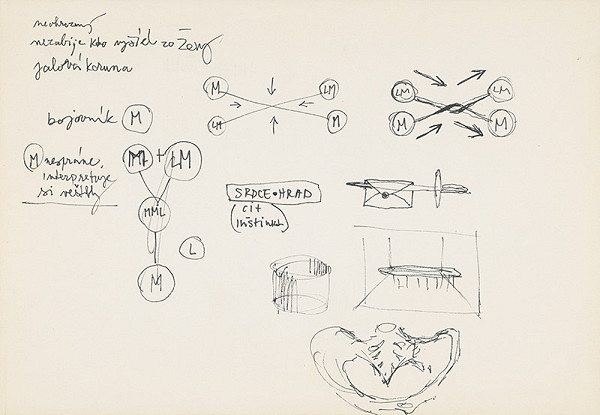 neohrozený
nezabije kto vyšiel zo ženy
jalová koruna
bojovník M
M nesprávne
interpretuje
si veštby
M LM
LM M
LM LM
M M
M + LM
MML
L
M
SRDCE • HRAD
cit
inštinkt